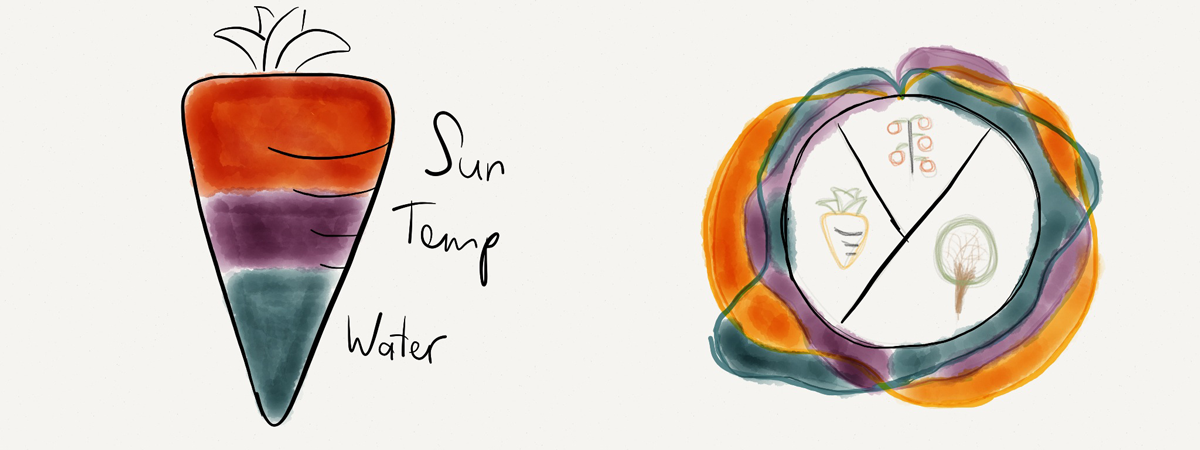 Sun
Temp
Water